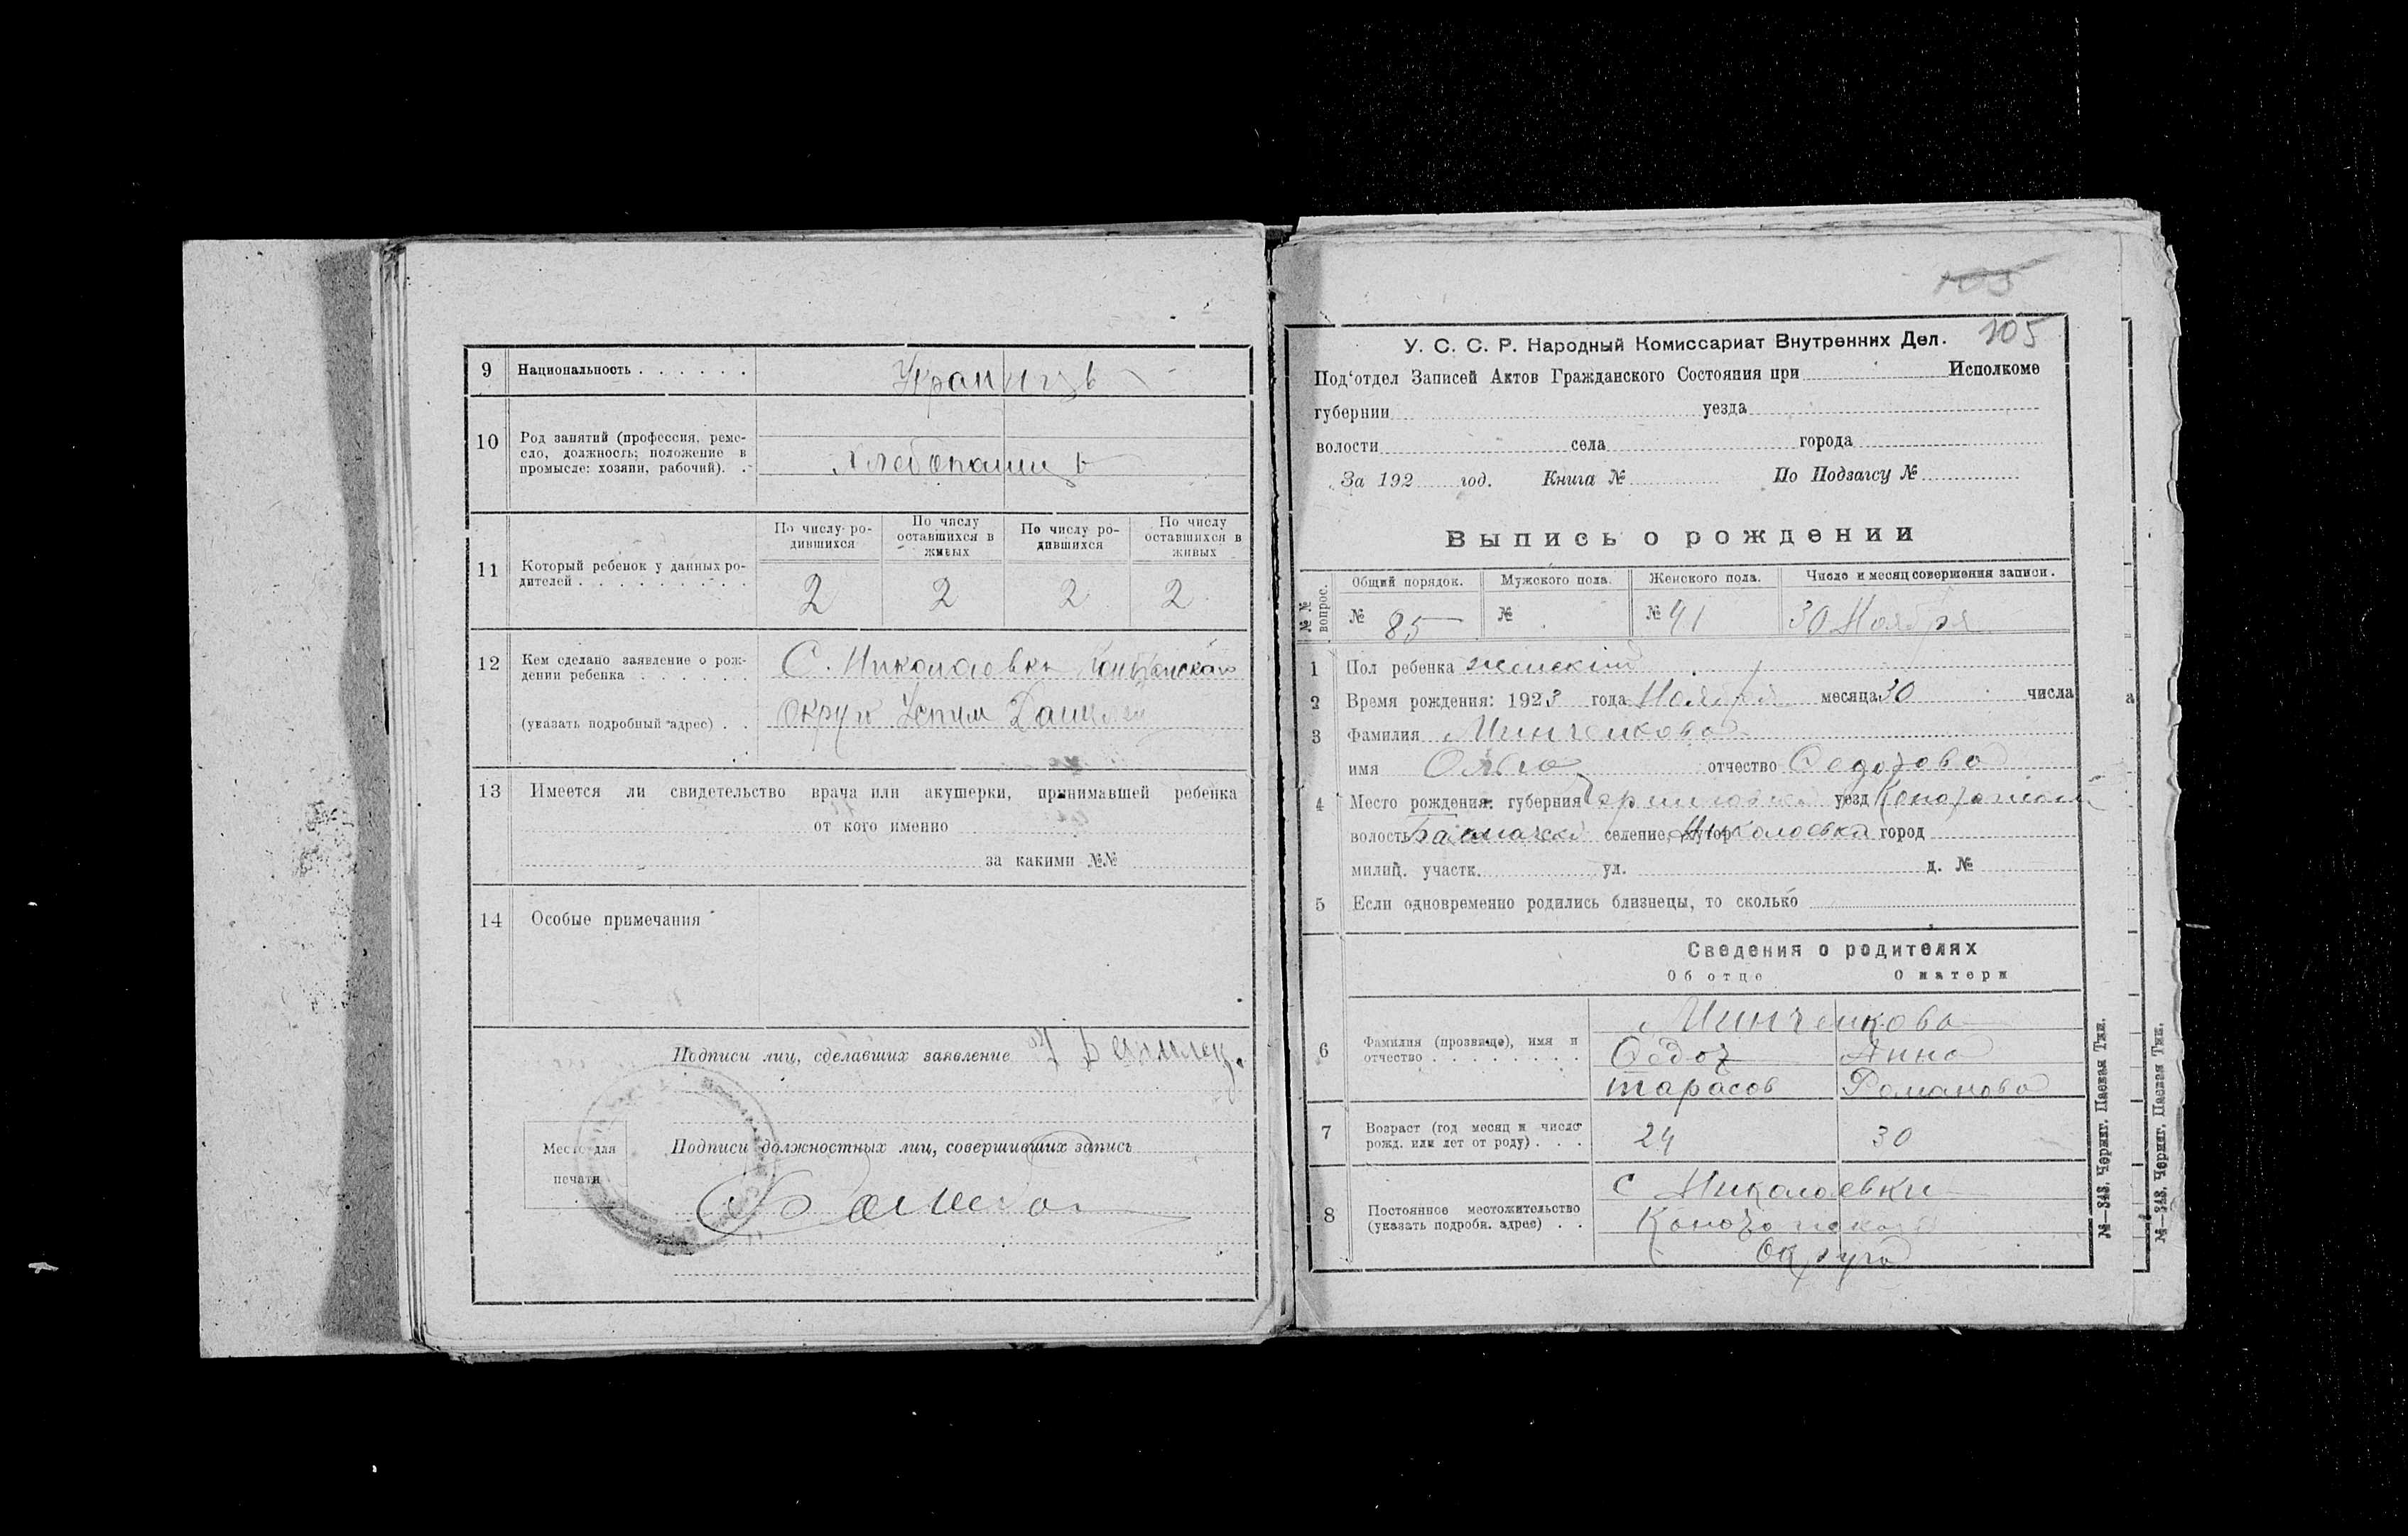 9 Национальность . . . . . .
Украинцъ
10 Род занятий (профессия, реме-
сло, должность; положение в
промысле: хозяин, рабочий). .
Хлебопашцъ
11 Который ребенок у данных ро-
дителей . . . . . . . . . .
По числу ро-
дившихся
По числу
оставшихся в
живых
По числу ро-
дившихся
По числу
оставшихся в
живых
2 2 2 2
12 Кем сделано заявление о рож-
дении ребенка . . . . . .
(указать подробный адрес) . .
С. Николаевки
Округи
13 Имеется ли свидетельство врача или акушерки, принимавшей ребенка
от кого именно
за какими №№
14 Особые примечания
Подписи лиц, сделавших заявление
Место для
печати
Подписи должностных лиц, совершивших запись
105
105
У. С. С. Р. Народный Комиссариат Внутренних Дел.
Под‘отдел Записей Актов Гражданского Состояния при Исполкоме
губернии уезда
волости села города
За 192 год. Книга № По Подзагсу №
Выпись о рождении
№ №
вопрос.
Общий порядок. Мужского пола. Женского пола. Число и месяц совершения записи.
№ 85 № № 41 30 Ноября
1 Пол ребенка женский
2 Время рождения: 1923 года Ноября месяца 30 числа
3 Фамилия Минченкова
имя Ольга отчество Федорова
4 Место рождения: губерния Черниговская уезд Конотопский
волость Бахмачск селение, хутор Николаевка город
милиц. участк. ул. д. №
5 Если одновременно родились близнецы, то сколько
Сведения о родителях
Об отце О матери
6 Фамилия (прозвище), имя и
отчество . . . . . . . .
Минченкова
Федор Анна
тарасов Романова
7 Возраст (год месяц и число
рожд. или лет от роду) . . .
24 30
8 Постоянное местожительство
(указать подробн. адрес) . .
с Николаевки
Конотопская
Округа
№—343. Черниг. Паевая Тип.
а
№—343. Черниг. Паевая Тип.